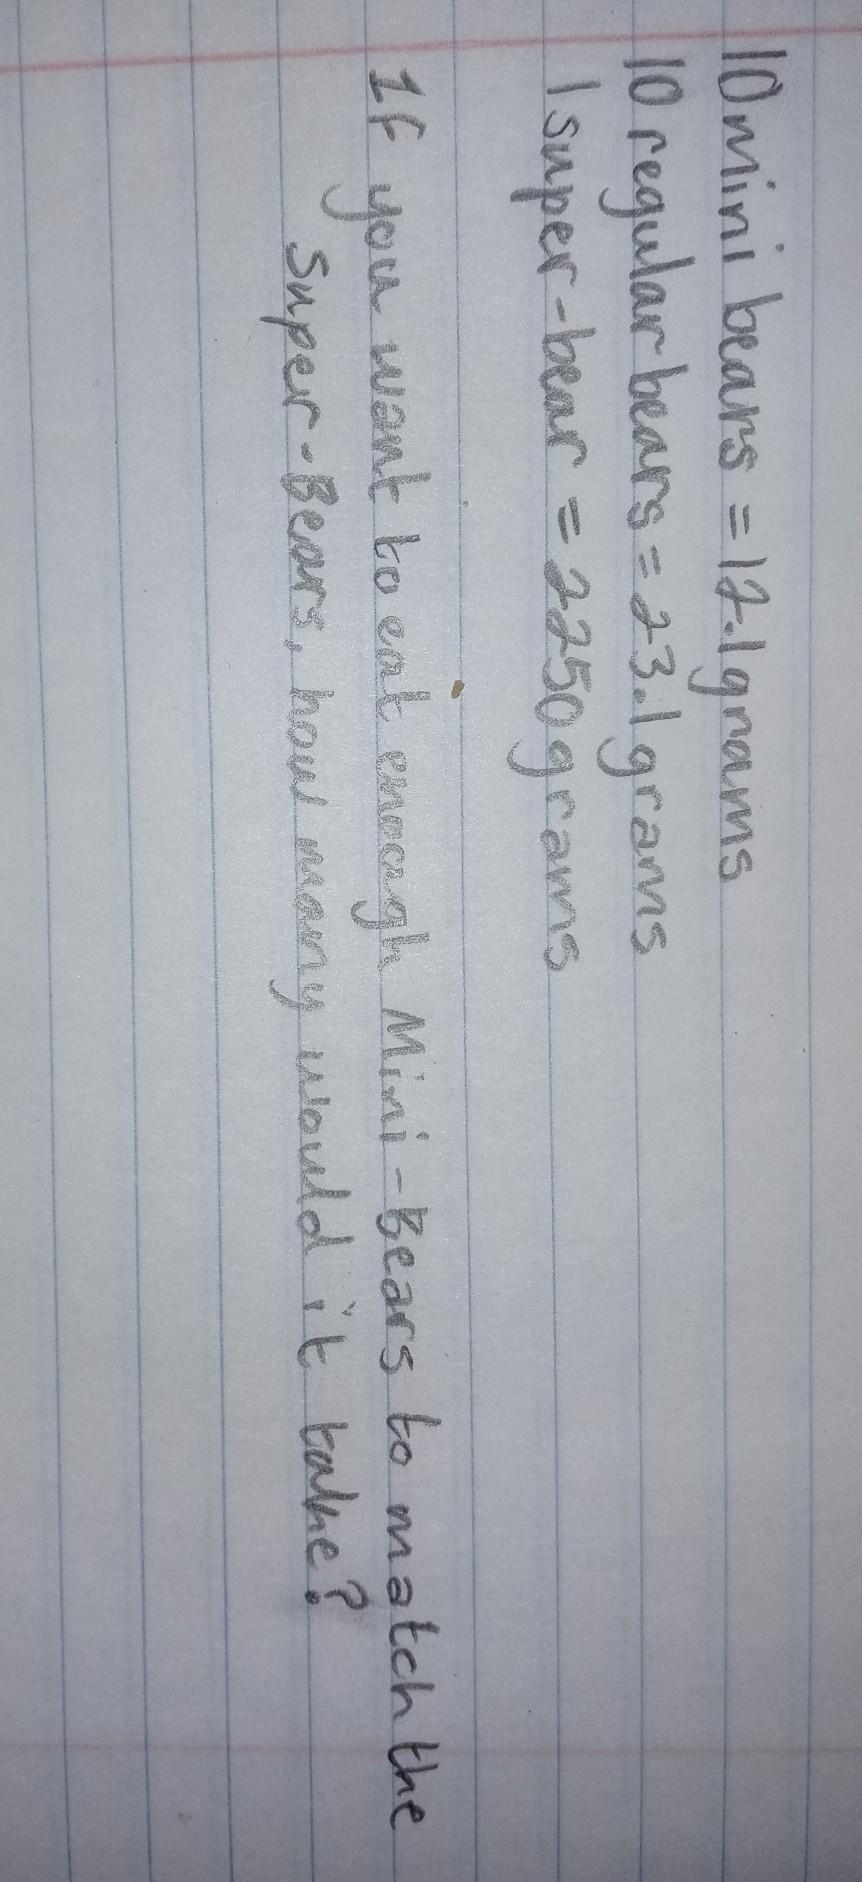 10 mini bears = 12.1 grams
10 regular bears = 23.1 grams
1 super-bear = 2250 grams
If you want to eat enough Mini-Bears to match the
Super-Bears, how many would it take?